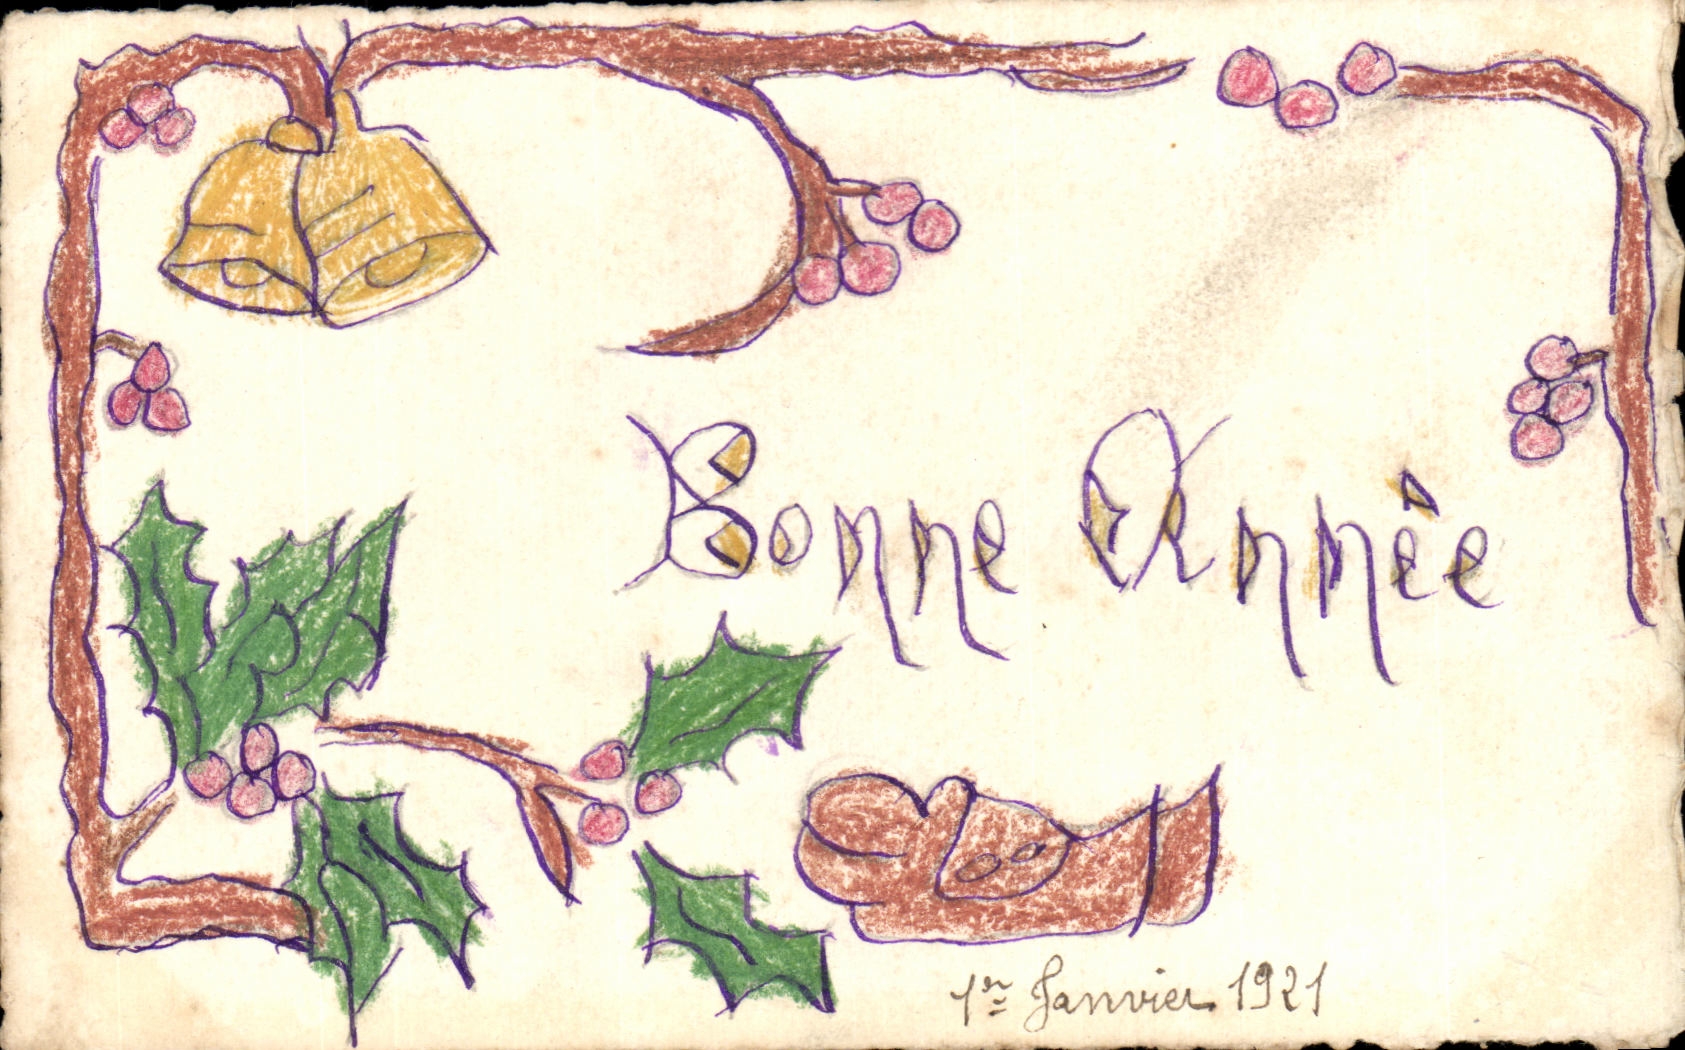 Bonne Année
1er Janvier 1921